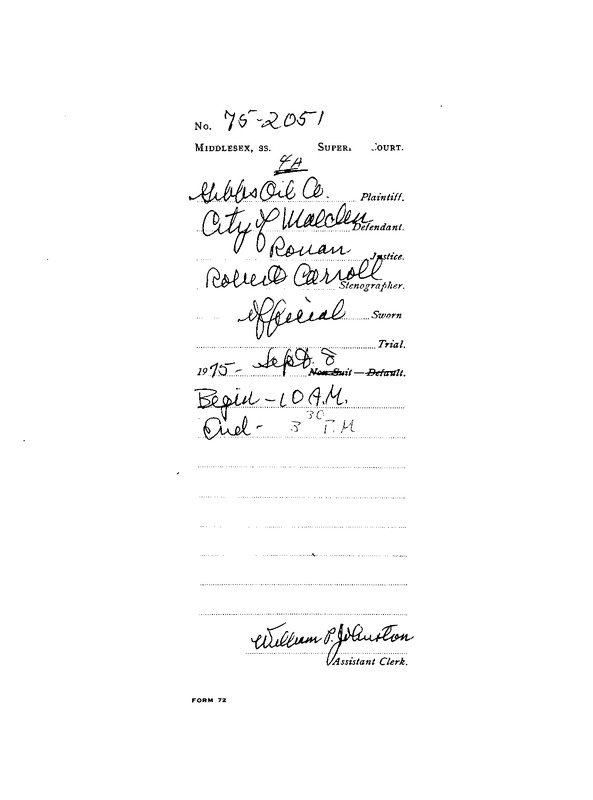 No. 75-2051
MIDDLESEX, SS. SUPER. COURT.
4A
Gibbs Oil Co. Plaintiff.
City of Malden Defendant.
Ronan Justice.
Robert Carroll Stenographer.
official Sworn
Trial.
1975- Sept. 8 Non Suit — Default.
Begin - 10 A.M.
End - 3 30 P.M
William P. Johnston
Assistant Clerk.
FORM 72